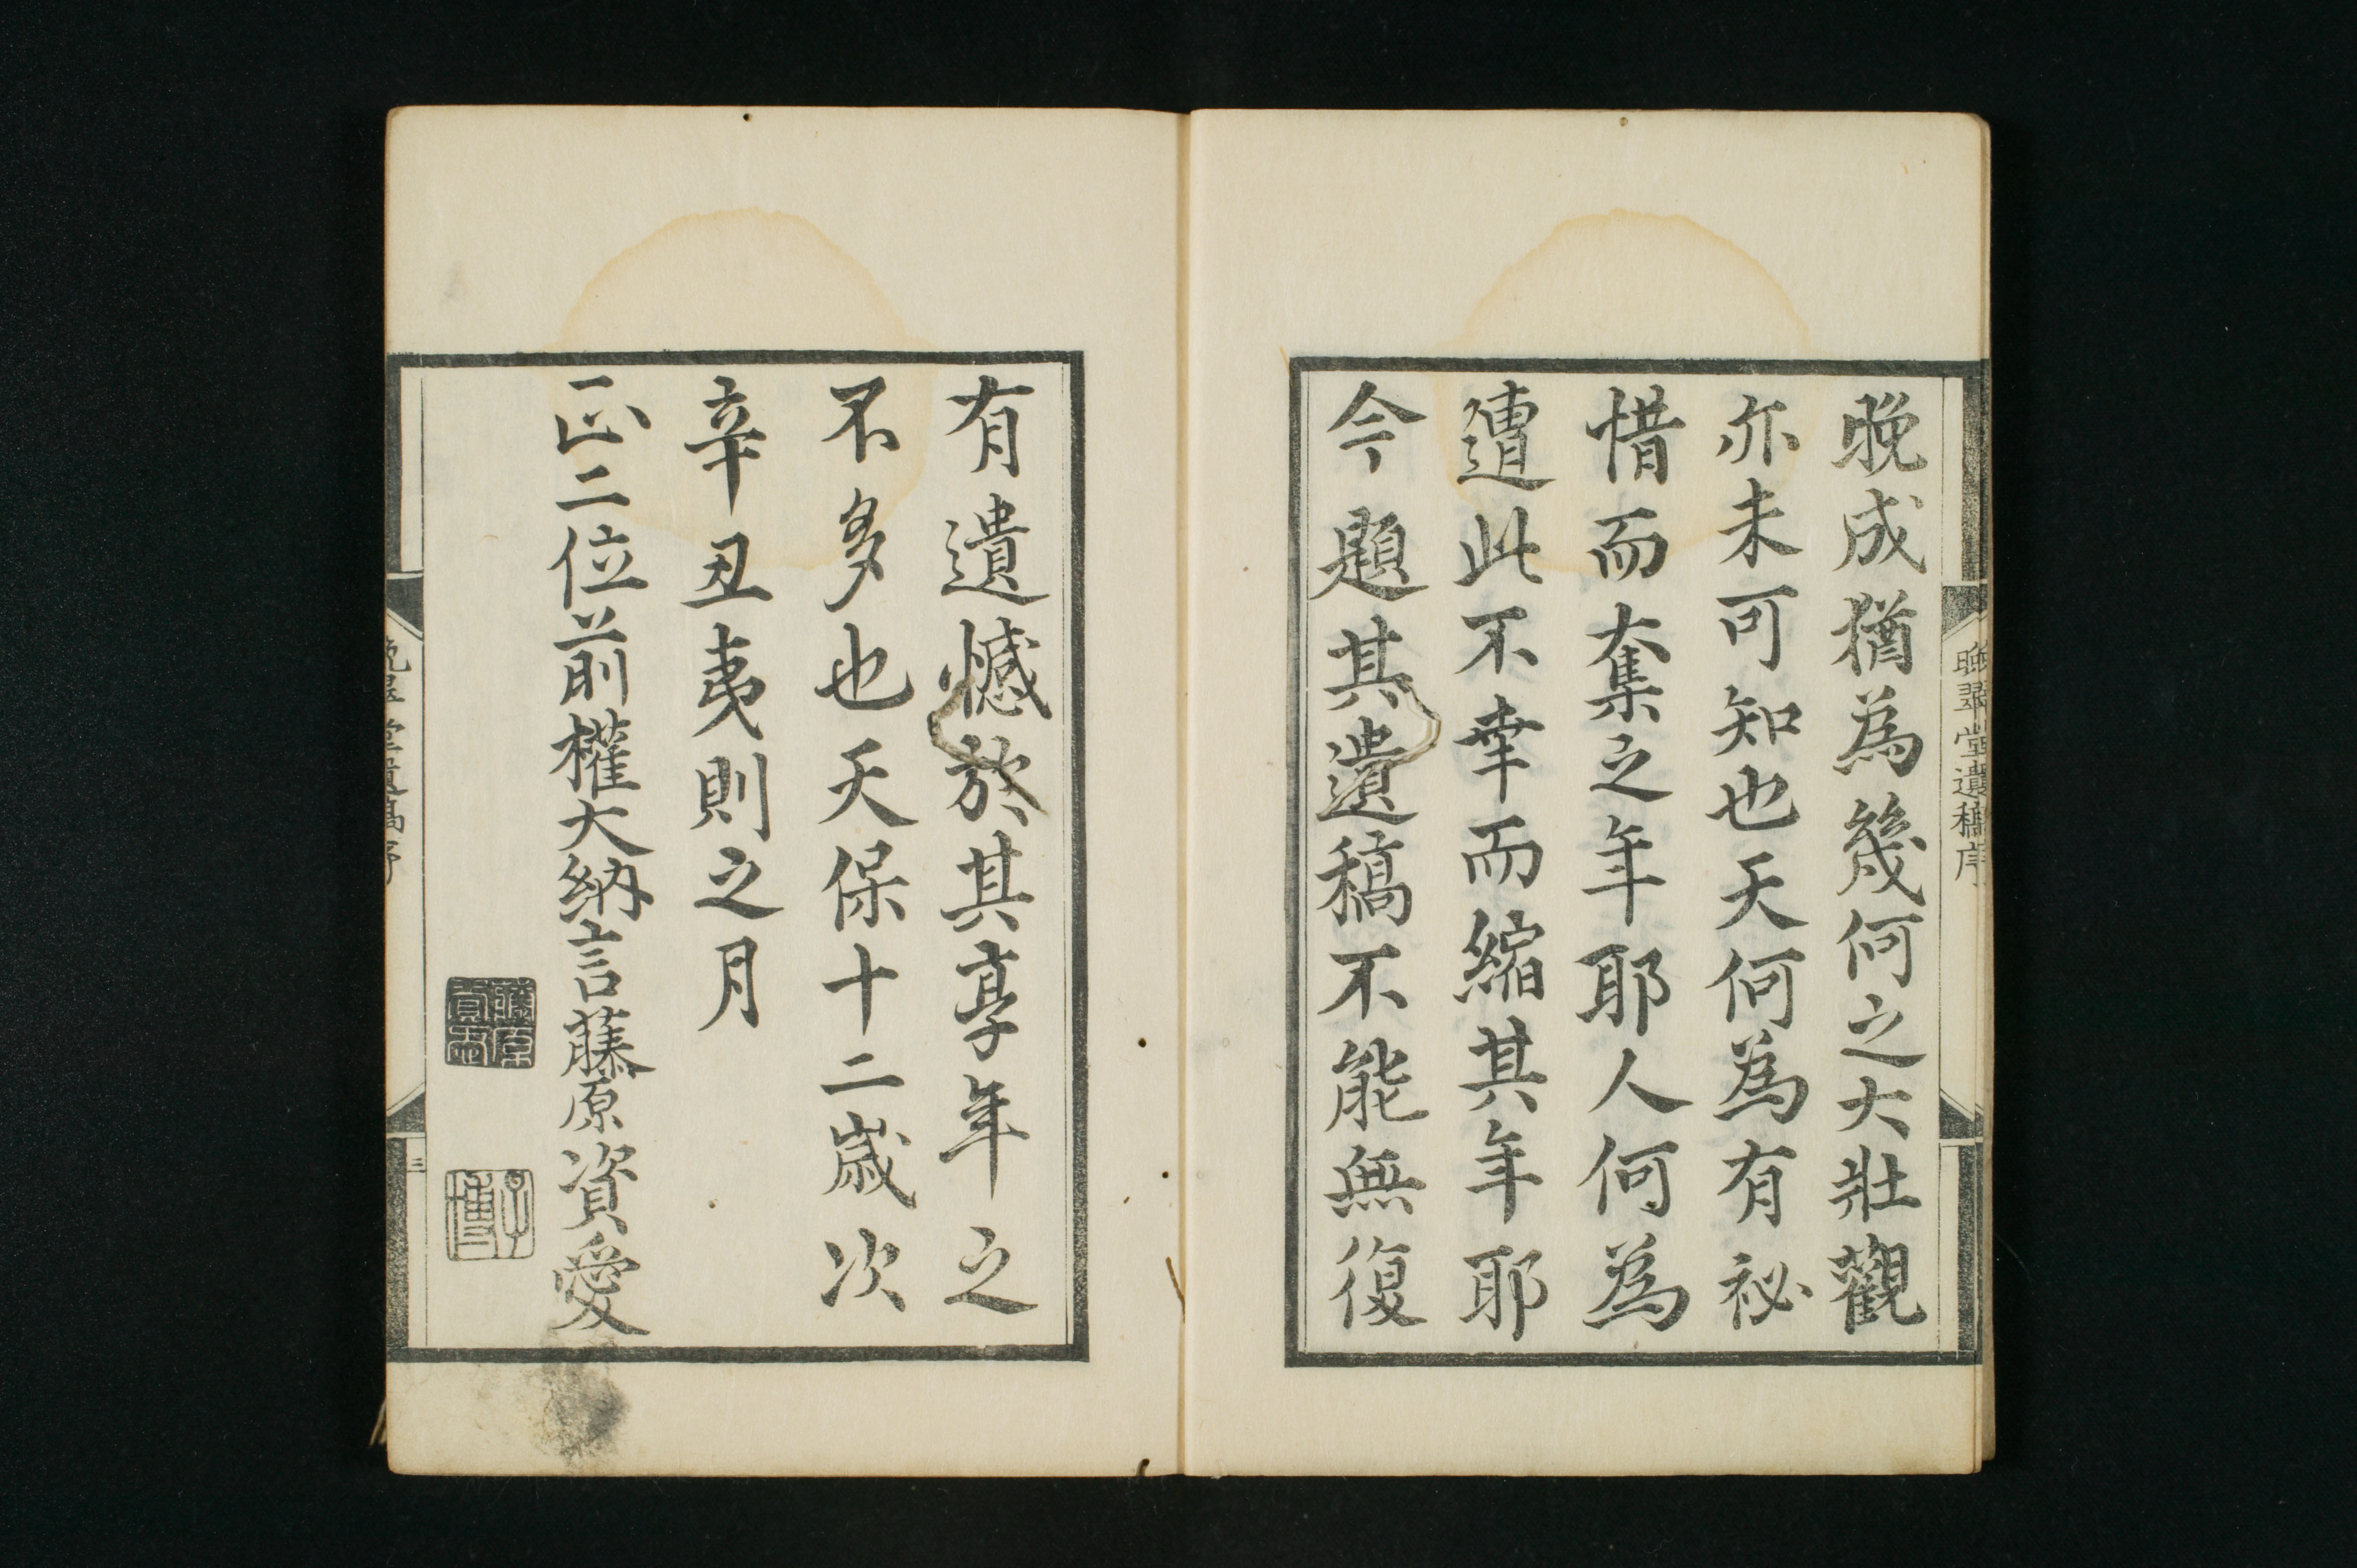 晩翠堂遺稿序
晩成猶為幾何之大壯觀
亦未可知也天何為有祕
惜而奪之年耶人何為
遭此不幸而縮其年耶
今題其遺稿不能無復
有遺憾於其享年之
不多也天保十二歳次
辛丑夷則之月
正二位前權大納言藤原資愛
藤原資愛
晩翠堂遺稿序
三